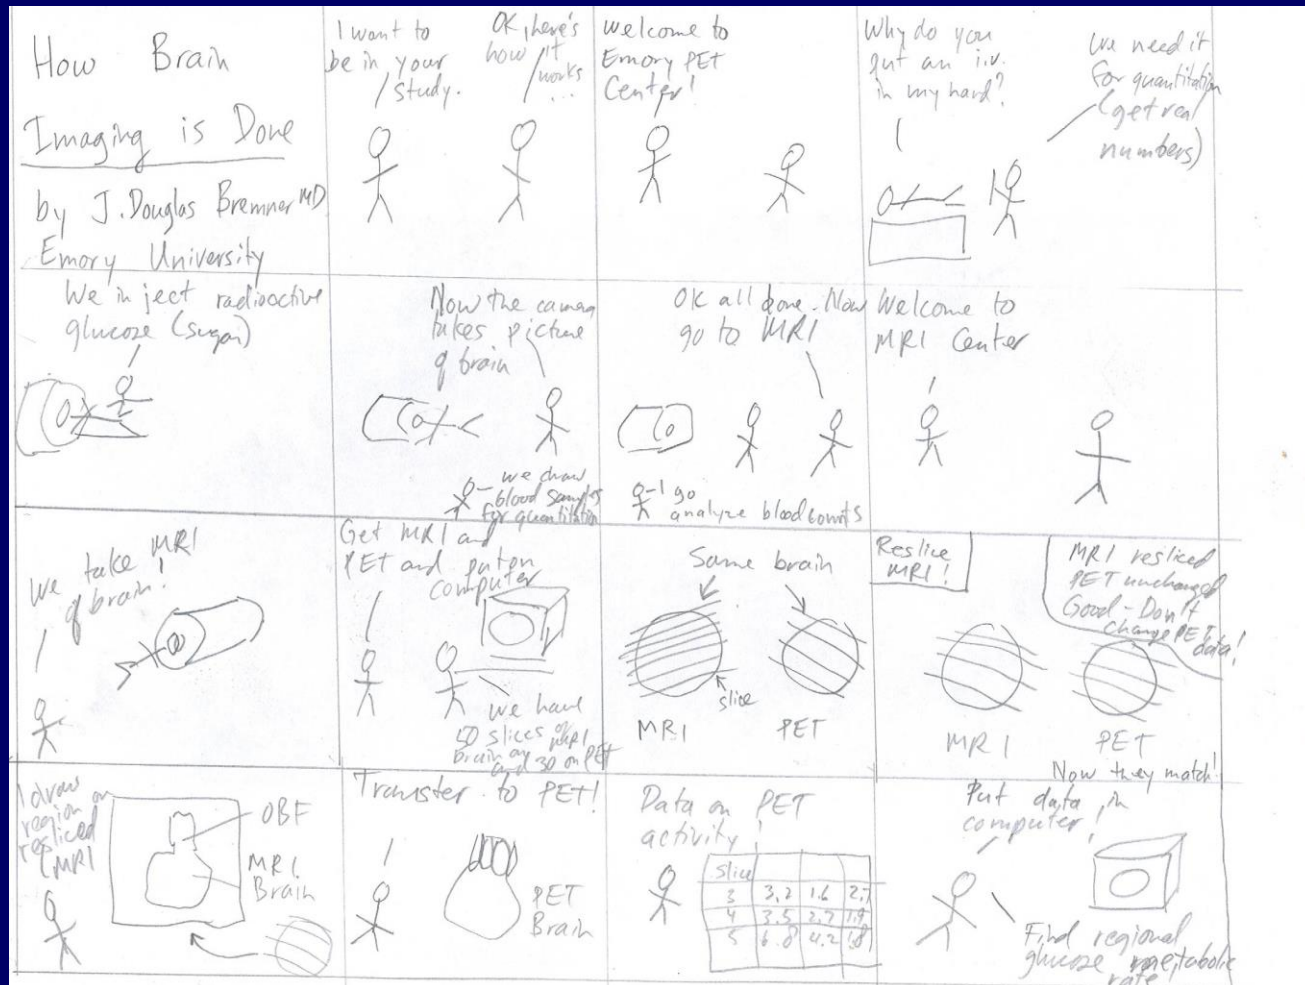 How Brain
Imaging is Done
by J. Douglas Bremner MD
Emory University
I want to
be in your
study.
OK, here's
how it
works
...
Welcome to
Emory PET
Center!
Why do you
put an i.v.
in my hand?
We need it
for quantitation
(get real
numbers)
We inject radioactive
glucose (sugar)
Now the camera
takes picture
of brain
we draw
blood samples
for quantitation
OK all done. Now
go to MRI
I go
analyze blood counts
Welcome to
MRI Center
We take MRI
of brain!
Get MRI and
PET and put on
computer
we have
slices of MRI
brain
and 30 on PET
Same brain
slice
MRI
PET
Reslice
MRI!
MRI resliced
PET unchanged
Good - Don't
change PET
data!
MRI
PET
Now they match!
I draw
region on
resliced
MRI
OBF
MRI
Brain
Transfer to PET!
PET
Brain
Data on PET
activity!
slice
3 3.2 1.6 2.7
4 3.5 2.7 1.9
5 6.8 4.2 1.8
Put data in
computer!
Find regional
glucose metabolic
rate